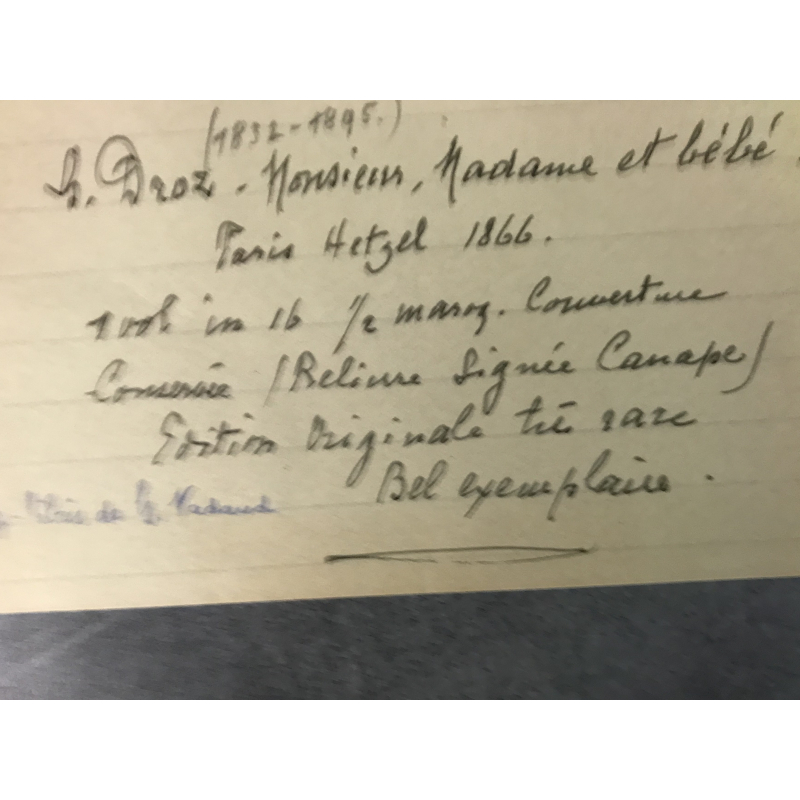 (1832-1895.)
G. Droz. Monsieur, Madame et bébé.
Paris Hetzel 1866.
1 vol in 16 1/2 maroq. Couverture
Conservée (Reliure Signée Canape)
Edition Originale très rare
Bel exemplaire.
de G. Nadaud